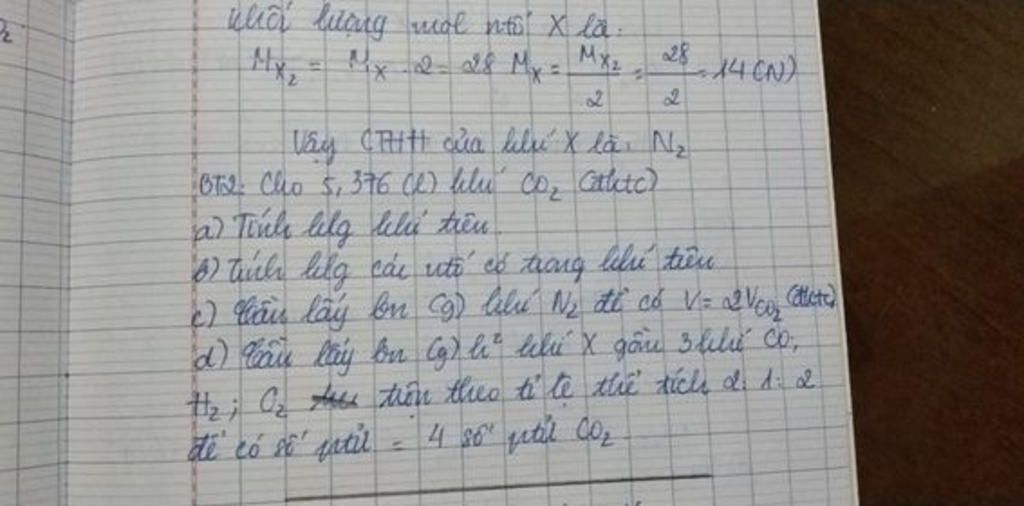 khối lượng mol ntố X là:
M_X₂ = M_X . 2 = 28 M_X = M_X₂/2 = 28/2 = 14 (N)
Vậy CTHH của khí X là: N₂
BT2: Cho 5,376 (l) khí CO₂ (đktc)
a) Tính klg khí trên.
b) Tính klg các ntố có trong khí trên
c) Cần lấy bn (g) khí N₂ để có V = 2V_CO₂ (đktc)
d) Cần lấy bn (g) h² khí X gồm 3 khí CO,
H₂; O₂ trộn theo tỉ lệ thể tích 2:1:2
để có số ptử = 4 số ptử CO₂